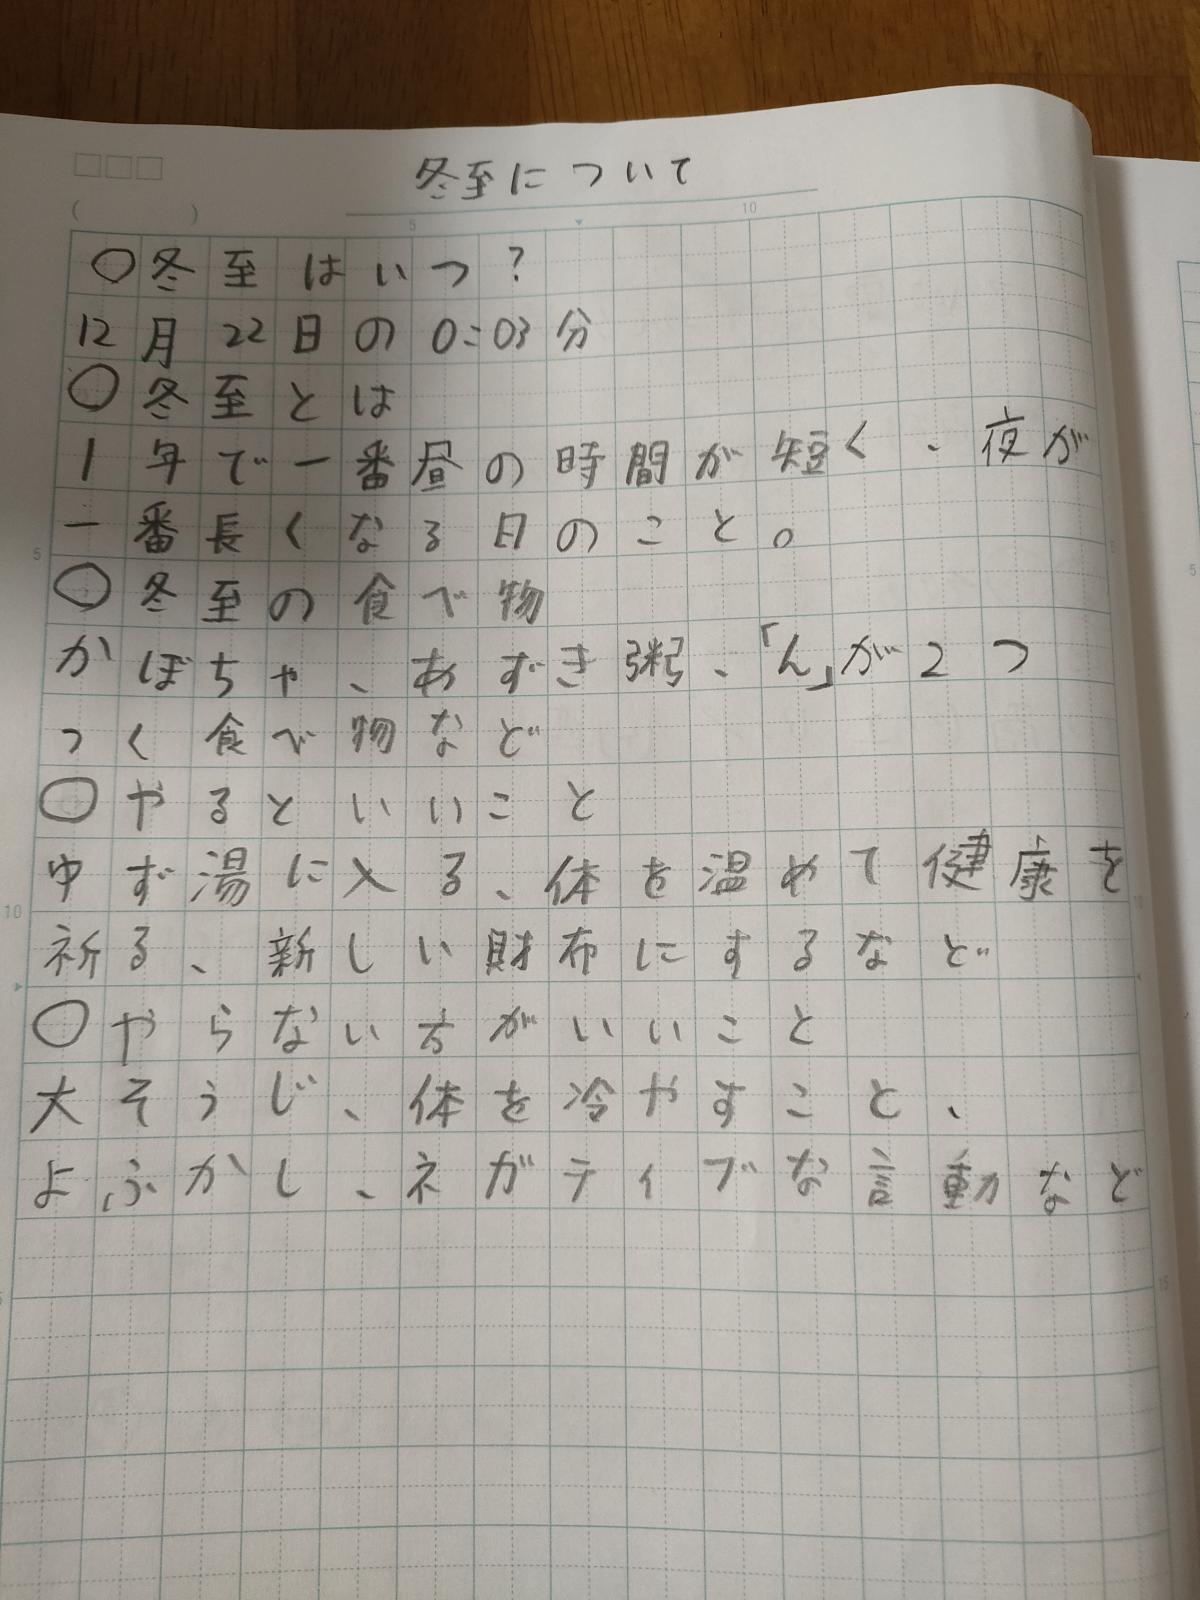 冬至について
○冬至はいつ?
12月22日の0:03分
○冬至とは
1年で一番昼の時間が短く、夜が
一番長くなる日のこと。
○冬至の食べ物
かぼちゃ、あずき粥、「ん」が2つ
つく食べ物など
○やるといいこと
ゆず湯に入る、体を温めて健康を
祈る、新しい財布にするなど
○やらない方がいいこと
大そうじ、体を冷やすこと、
よふかし、ネガティブな言動など